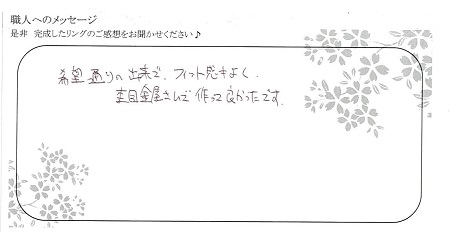 職人へのメッセージ
是非 完成したリングのご感想をお聞かせください♪
希望通りの出来で、フィット感もよく、
杢目金屋さんで作って良かったです。